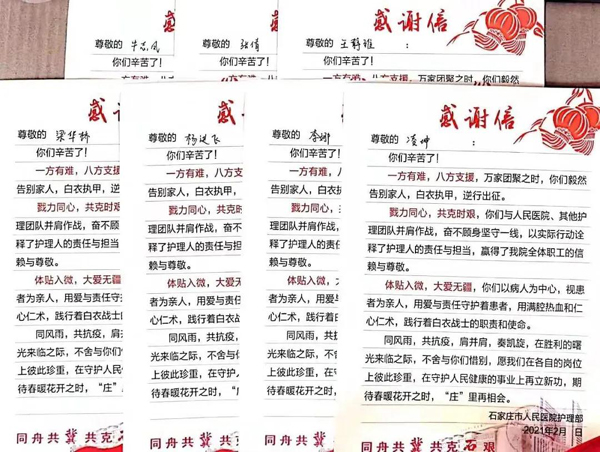 尊敬的
你们辛苦了！
一方有
感
尊敬的 张倩
你们辛苦了！
一方有难
感谢信
尊敬的 王静雅 ：
你们辛苦了！
一方有难，八方支援，万家团聚之时，你们毅然
感
尊敬的 梁华
你们辛苦了！
一方有难，八方支援
告别家人，白衣执甲，逆
戮力同心，共克时艰
理团队并肩作战，奋不顾
释了护理人的责任与担当
赖与尊敬。
体贴入微，大爱无疆
者为亲人，用爱与责任守
心仁术，践行着白衣战士
同风雨，共抗疫，肩
光来临之际，不舍与你
上彼此珍重，在守护人
待春暖花开之时，“庄
同舟共冀 共
感
尊敬的
你们辛苦了！
一方有难，八
告别家人，白衣执
戮力同心，共
理团队并肩作战，
释了护理人的责任
赖与尊敬。
体贴入微，大
者为亲人，用爱与
心仁术，践行着白
同风雨，共抗
光来临之际，不舍
上彼此珍重，在守
期待春暖花开之时
同舟共冀
感
尊敬的 李娜
你们辛苦了！
一方有难，
告别家人，白衣
戮力同心，
理团队并肩作战
释了护理人的责
赖与尊敬。
体贴入微，
者为亲人，用爱
心仁术，践行着
同风雨，共
光来临之际，不
上彼此珍重，在
期待春暖花开之
同舟共
感谢信
尊敬的 凌坤 ：
你们辛苦了！
一方有难，八方支援，万家团聚之时，你们毅然
告别家人，白衣执甲，逆行出征。
戮力同心，共克时艰，你们与人民医院、其他护
理团队并肩作战，奋不顾身坚守一线，以实际行动诠
释了护理人的责任与担当，赢得了我院全体职工的信
赖与尊敬。
体贴入微，大爱无疆，你们以病人为中心，视患
者为亲人，用爱与责任守护着患者，用满腔热血和仁
心仁术，践行着白衣战士的职责和使命。
同风雨，共抗疫，肩并肩，奏凯旋，在胜利的曙
光来临之际，不舍与你们惜别，愿我们在各自的岗位
上彼此珍重，在守护人民健康的事业上再立新功，期
待春暖花开之时，“庄”里再相会。
石家庄市人民医院护理部
2021年2月 日
同舟共冀 共克石艰